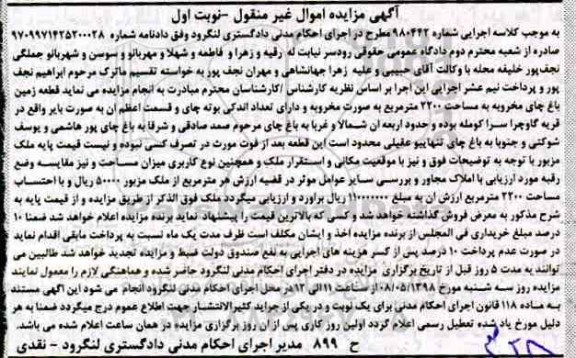 آگهی مزایده اموال غیر منقول -نوبت اول
به موجب کلاسه اجرایی شماره ۹۸۰۴۴۲ مطرح در اجرای احکام مدنی دادگستری لنگرود وفق دادنامه شماره ۹۷۰۹۹۷۱۴۲۵۳۰۰۰۲۸
صادره از شعبه محترم دوم دادگاه عمومی حقوقی رودسر نیابت له رقیه و زهرا و فاطمه و شهلا و مهربانو و سوسن و شهربانو جملگی
نجف پور خلیفه محله با وکالت آقای حبیبی و علیه زهرا جهانشاهی و مهران نجف پور به خواسته تقسیم ماترک مرحوم ابراهیم نجف
پور و پرداخت نیم عشر اجرایی این اجرا بر اساس نظریه کارشناس /کارشناسان محترم مبادرت به انجام مزایده می نماید قطعه زمین
باغ چای مخروبه به مساحت ۲۲۰۰ مترمربع به صورت مخروبه و دارای تعداد اندکی بوته چای و قسمت اعظم آن به صورت بایر واقع در
قریه گاوچرا سرا کومله بوده وحدود اربعه ان شمالا و غربا به باغ چای مرحوم صمد صادقی و شرقا به باغ چای پور هاشمی و یوسف
شوکتی و جنوبا به باغ چای تنهاییو عقیلی محدود است این قطعه بعد از فوت مورث در تصرف کسی نبوده و نیست قیمت پایه ملک
مزبور با توجه به توضیحات فوق و نیز با موقعیت مکانی و استقرار ملک و همچنین نوع کاربری میزان مساحت و نیز مقایسه وضع
رقبه مورد ارزیابی با املاک مجاور و بررسی سایر عوامل موثر در قضیه ارزش هر مترمربع از ملک مزبور ۵۰۰۰۰ ریال و با احتساب
مساحت ۲۲۰۰ مترمربع ارزش ان به مبلغ ۱۱۰۰۰۰۰۰۰ ریال براورد و ارزیابی میگردد ملک فوق الذکر از طریق مزایده و از قیمت پایه به
شرح مذکور به معرض فروش گذاشته خواهد شد و کسی که بالاترین قیمت را پیشنهاد نماید برنده مزایده اعلام خواهد شد ضمنا ۱۰
درصد مبلغ خریداری فی المجلس از برنده مزایده اخذ و ایشان مکلف است ظرف مدت یک ماه نسبت به پرداخت مابقی اقدام نماید
در صورت عدم پرداخت ۱۰ درصد پس از کسر هزینه های اجرایی به نفع صندوق دولت ضبط و مزایده تجدید خواهد شد طالبین می
توانند به مدت ۵ روز قبل از تاریخ برگزاری مزایده در دفتر اجرای احکام مدنی لنگرود حاضر شده و هماهنگی لازم را معمول نمایند
مزایده روز سه شنبه مورخ ۰۸/۰۵/۱۳۹۸ از ساعت ۱۱ الی ۱۲ در محل اجرای احکام مدنی لنگرود انجام می شود این آگهی مستند
به ماده ۱۱۸ قانون اجرای احکام مدنی برای یک نوبت و در یکی از جراید کثیرالانتشار جهت اطلاع عموم درج میگردد ضمنا به هر
دلیل مورخ یاد شده تعطیل رسمی اعلام گردد اولین روز کاری پس از ان روز برگزاری مزایده در همان ساعت اعلام شده می باشد.
ح ۸۹۹ مدیر اجرای احکام مدنی دادگستری لنگرود - نقدی